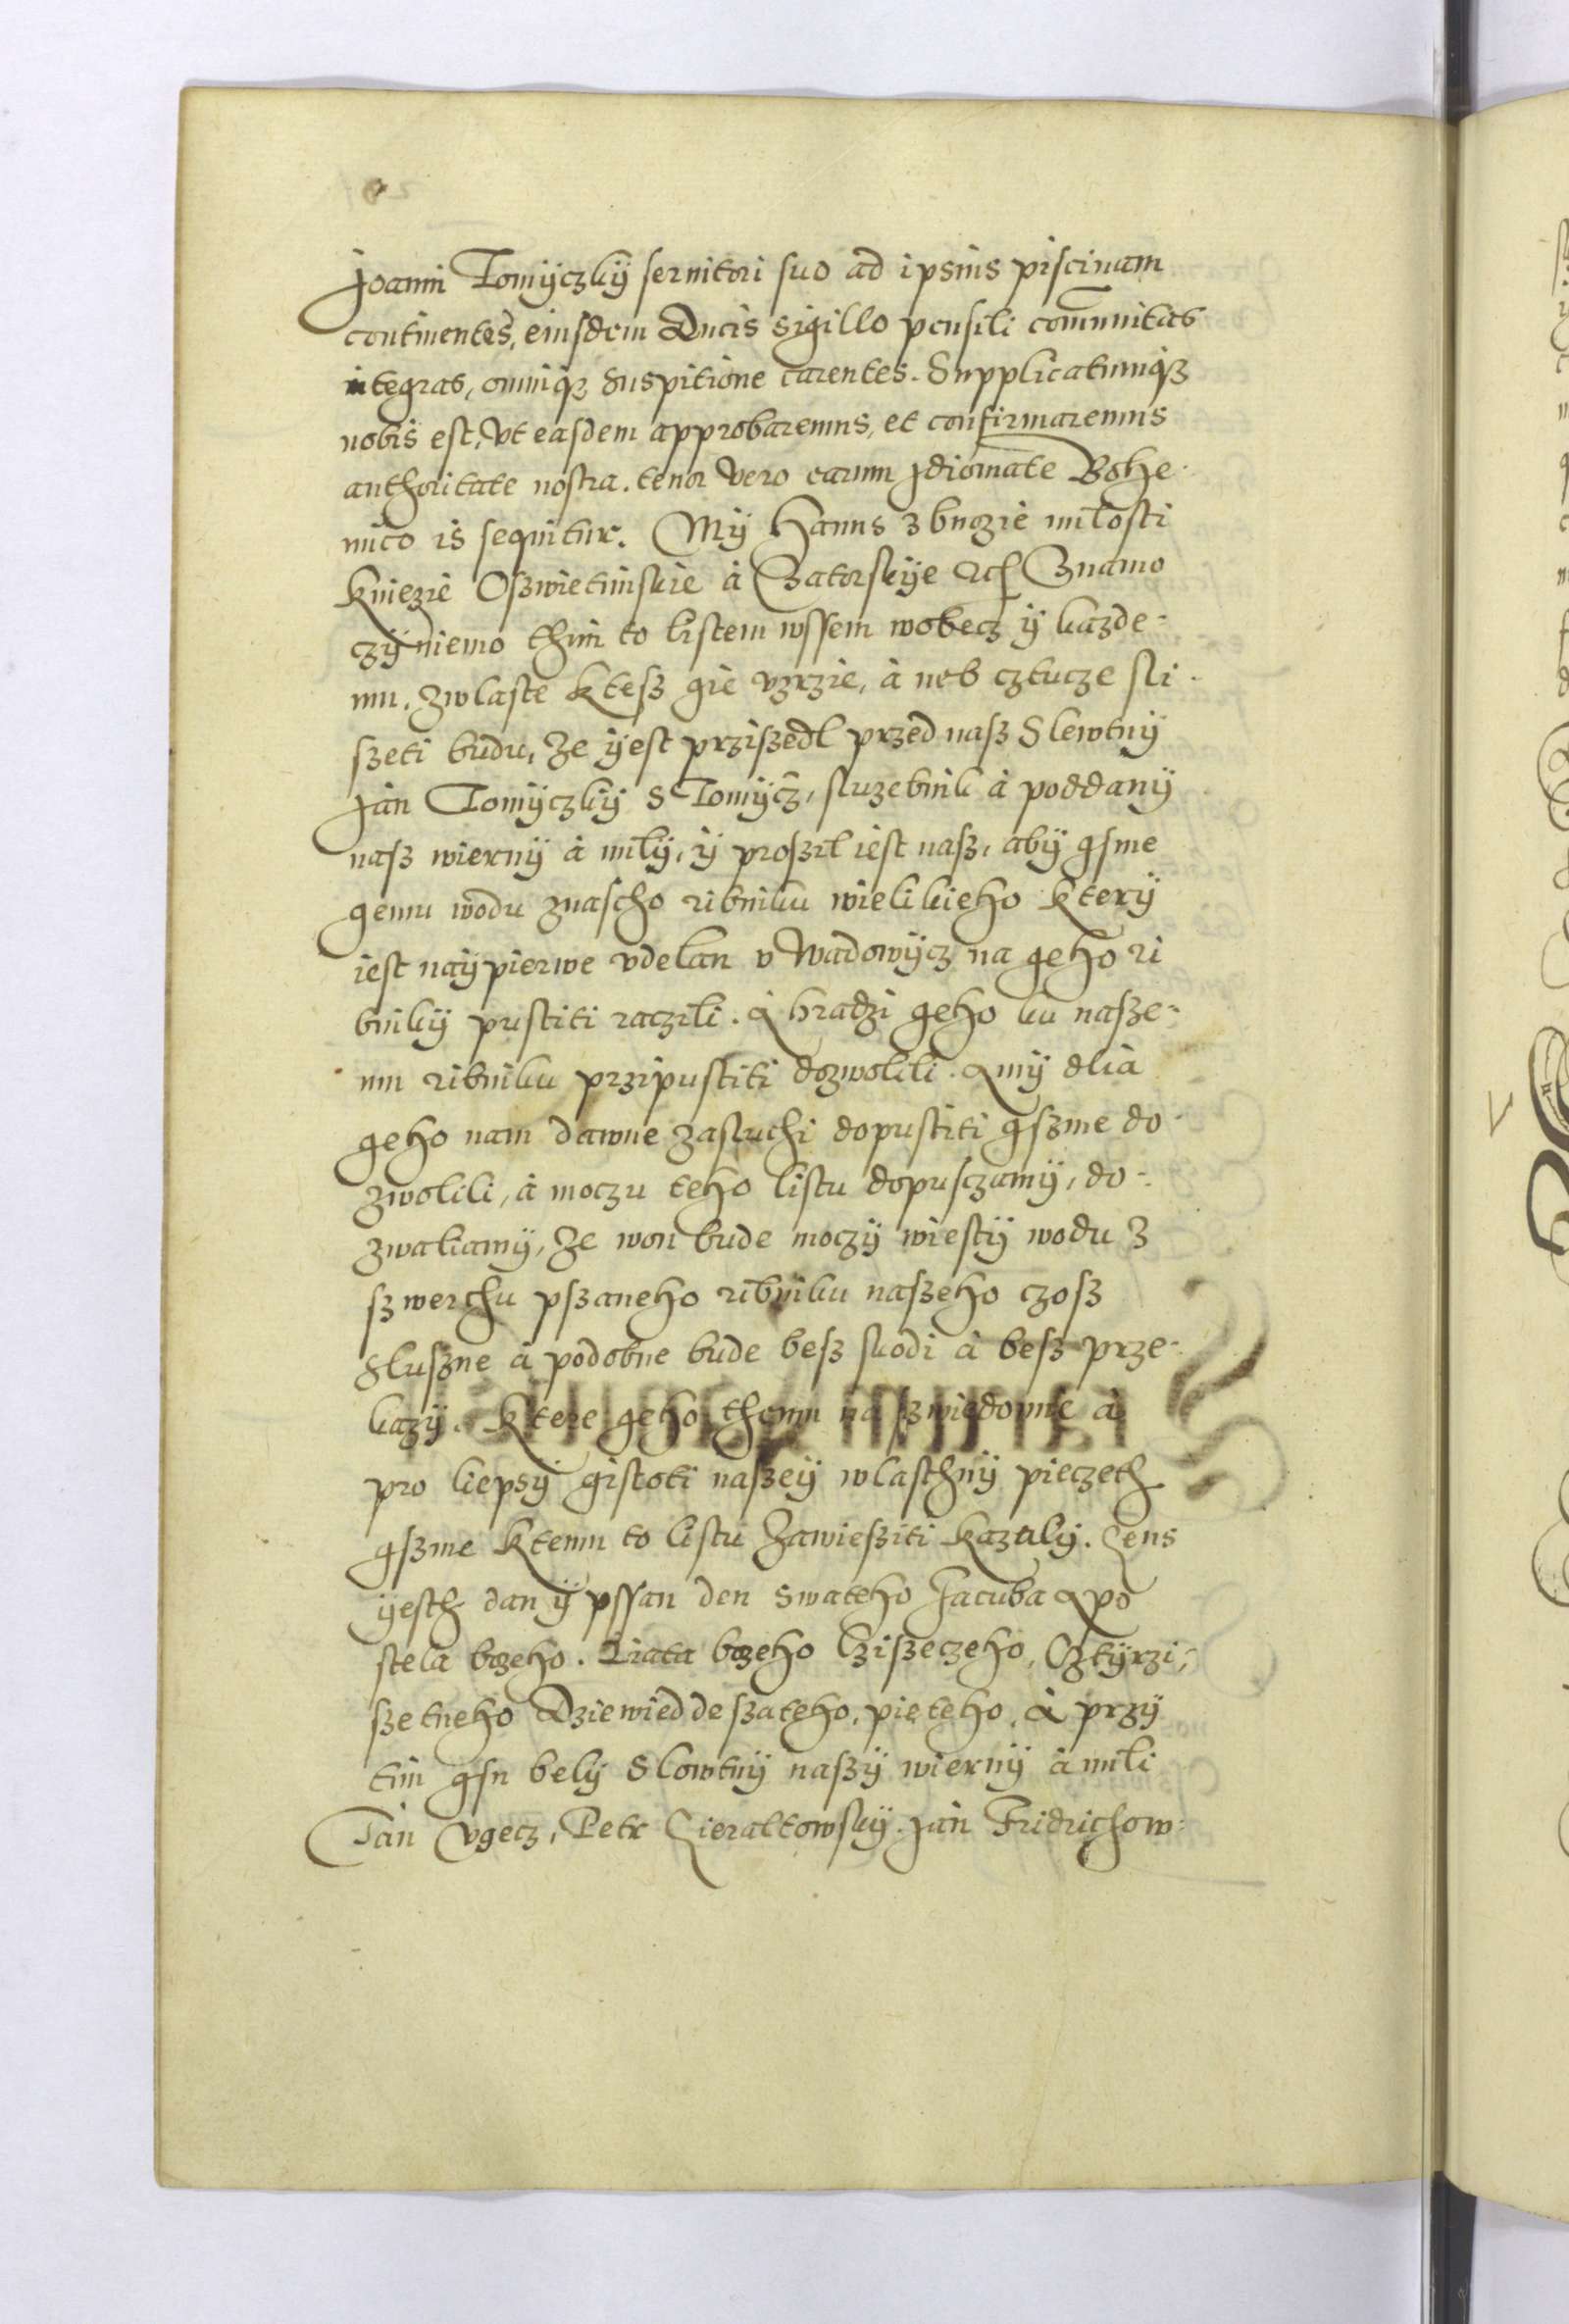 Joanni Tomÿczkÿ seruitori suo ad ipsius piscinam
continentes, eiusdem Ducis sigillo pensili com̄unitas
integras, omniq₃ suspitione carentes. Supplicatumq₃
nobis est, vt easdem approbaremus, et confirmaremus
authoritate nostra. tenor vero earum Jdiomate Bohe-
mico is sequitur. Mÿ Hanns z buozie milosti
Kniezie Oszwietimskie à Zatorskÿe etc Znamo
czÿniemo thim to listem wssem wobecz ÿ kazde-
mu, zwlaste ktesz gie vzrzie, à neb cztucze sli-
szeti budu, Ze ÿest prziszedl przed nasz Slewtnÿ
Jan Tomÿczkÿ S Tomÿcz, sluzebnik à poddanÿ
nasz wiernÿ à milÿ, ÿ proszil iest nasz, abÿ gsme
gemu wodu znascho ribniku wielikieho kterÿ
iest naÿpierwe vdelan v Wadowÿcz na geho ri
bnikÿ pustiti raczili. A hradzi geho ku nasze-
mu ribniku przipustiti dozwolili. A mÿ dlia
geho nam dawne zasluchi dopustiti gszme do-
zwolili, à moczu teho listu dopusczamÿ, do-
zwaliamÿ, Ze won bude moczÿ wiestÿ wodu z
szwerchu pszaneho ribniku naszeho czosz
Sluszne à podobne bude besz skodi à besz prze-
kazÿ. Ktere geho themu na szwiedomie à
pro liepsÿ gistoti naszeÿ wlasthnÿ pieczeth
gszme ktemu to listu Zawiesziti kazalÿ. Gens
ÿesth dan ÿ pssan den Swateho Jacuba Apo
stela bozeho. Liata bozeho Tziszeczeho, Cztÿrzi-
szetneho Dziewieddeszateho, pieteho, A przÿ
tim gsu belÿ Slowtnÿ naszÿ wiernÿ à mili
Jan Vgecz, Petr Gieraltowskÿ. Jan Fridrichow-